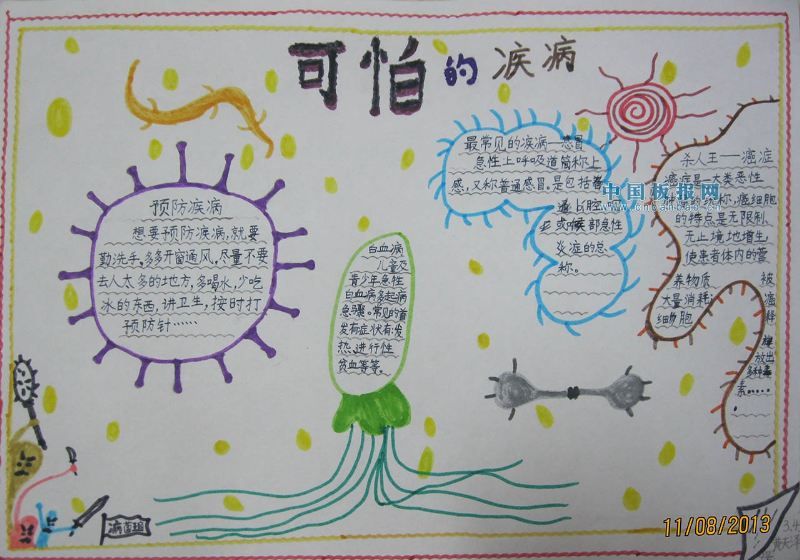 可怕的疾病
预防疾病
想要预防疾病,就要
勤洗手。多多开窗通风,尽量不要
去人太多的地方,多喝水,少吃
冰的东西,讲卫生,按时打
预防针……
白血病
儿童及
青少年急性
白血病多起病
急骤。常见的首
发有症状有:发
热、进行性
贫血等等。
最常见的疾病—感冒
急性上呼吸道简称上
感,又称普通感冒。是包括
腔、
或喉部急性
炎症的总
称。
杀人王——癌症
癌症是一大类恶性
的统称,癌细胞
的特点是无限制、
无止境地增生,
使患者体内的营
养物质被
大量消耗;癌
细胞释
放出
多种毒
素……
。
中国板报网
病菌
11/08/2013
3.4